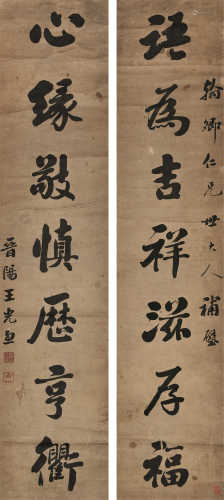 翰卿仁兄世大人補壁
語為吉祥滋厚福
心緣敬慎歷亨衢
晉陽王光照